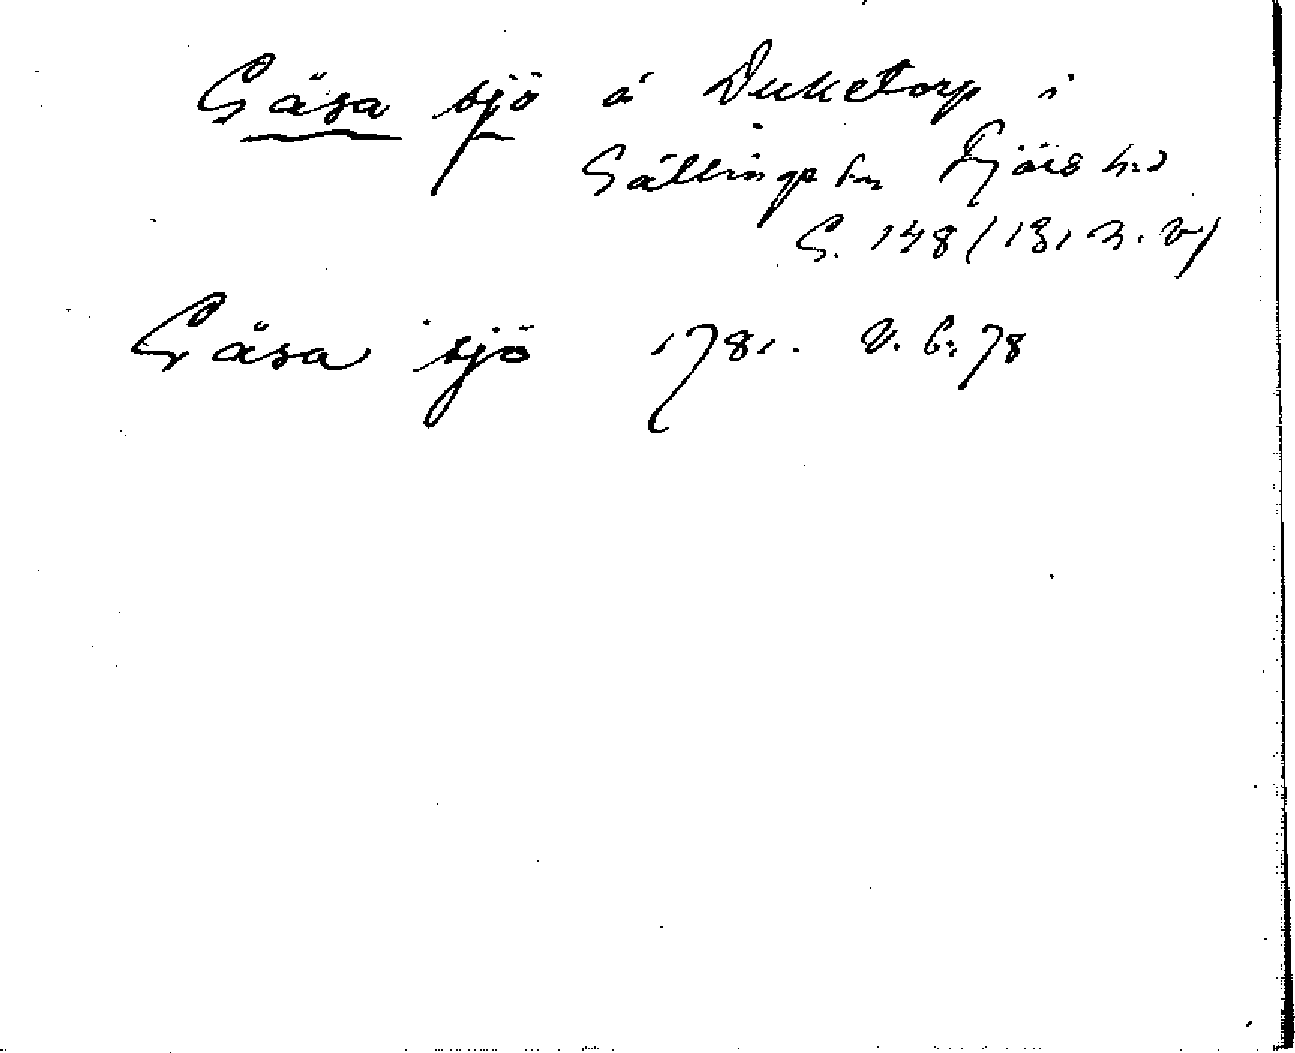 Gåsa sjö å Duketorp i
Gällinge sn Fjäre hd
G. 148 / 131 n. v/
Gåsa sjö 1781. v. b: 78